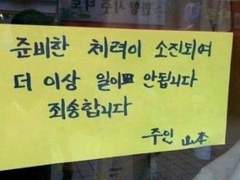 준비한 체력이 소진되여
더 이상 일이 안됩니다
죄송합니다
-주인 山本